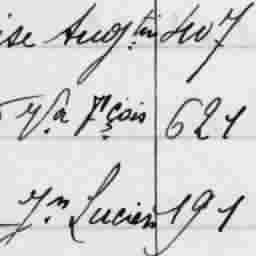 ise Aug.tin 407
Va F.çois 621
Jn Lucien 191